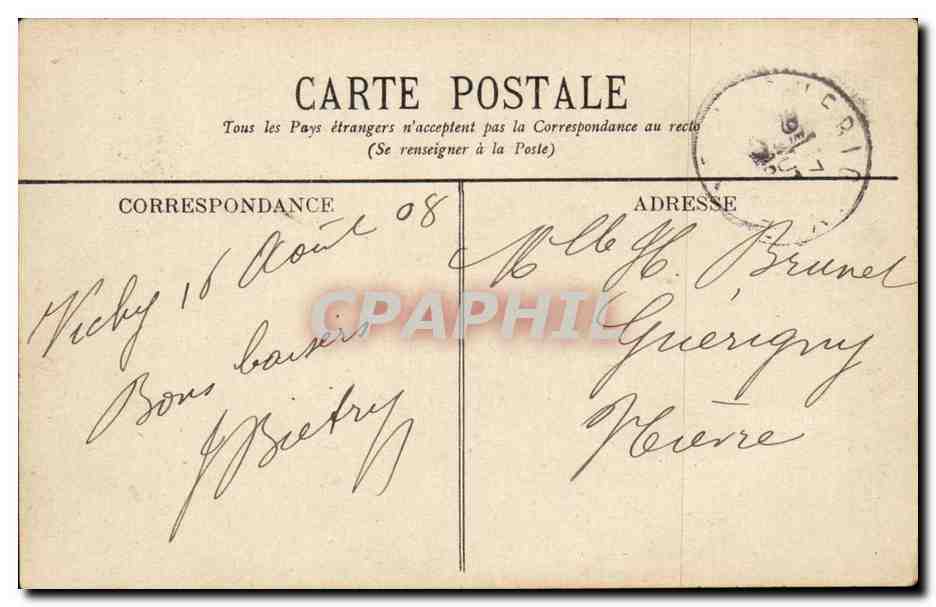 CARTE POSTALE
Tous les Pays étrangers n'acceptent pas la Correspondance au recto
(Se renseigner à la Poste)
CORRESPONDANCE
Vichy 16 Août 08
Bons baisers
J Bietry
ADRESSE
Mlle H. Brunet
Guérigny
Nièvre
CPAPHIL